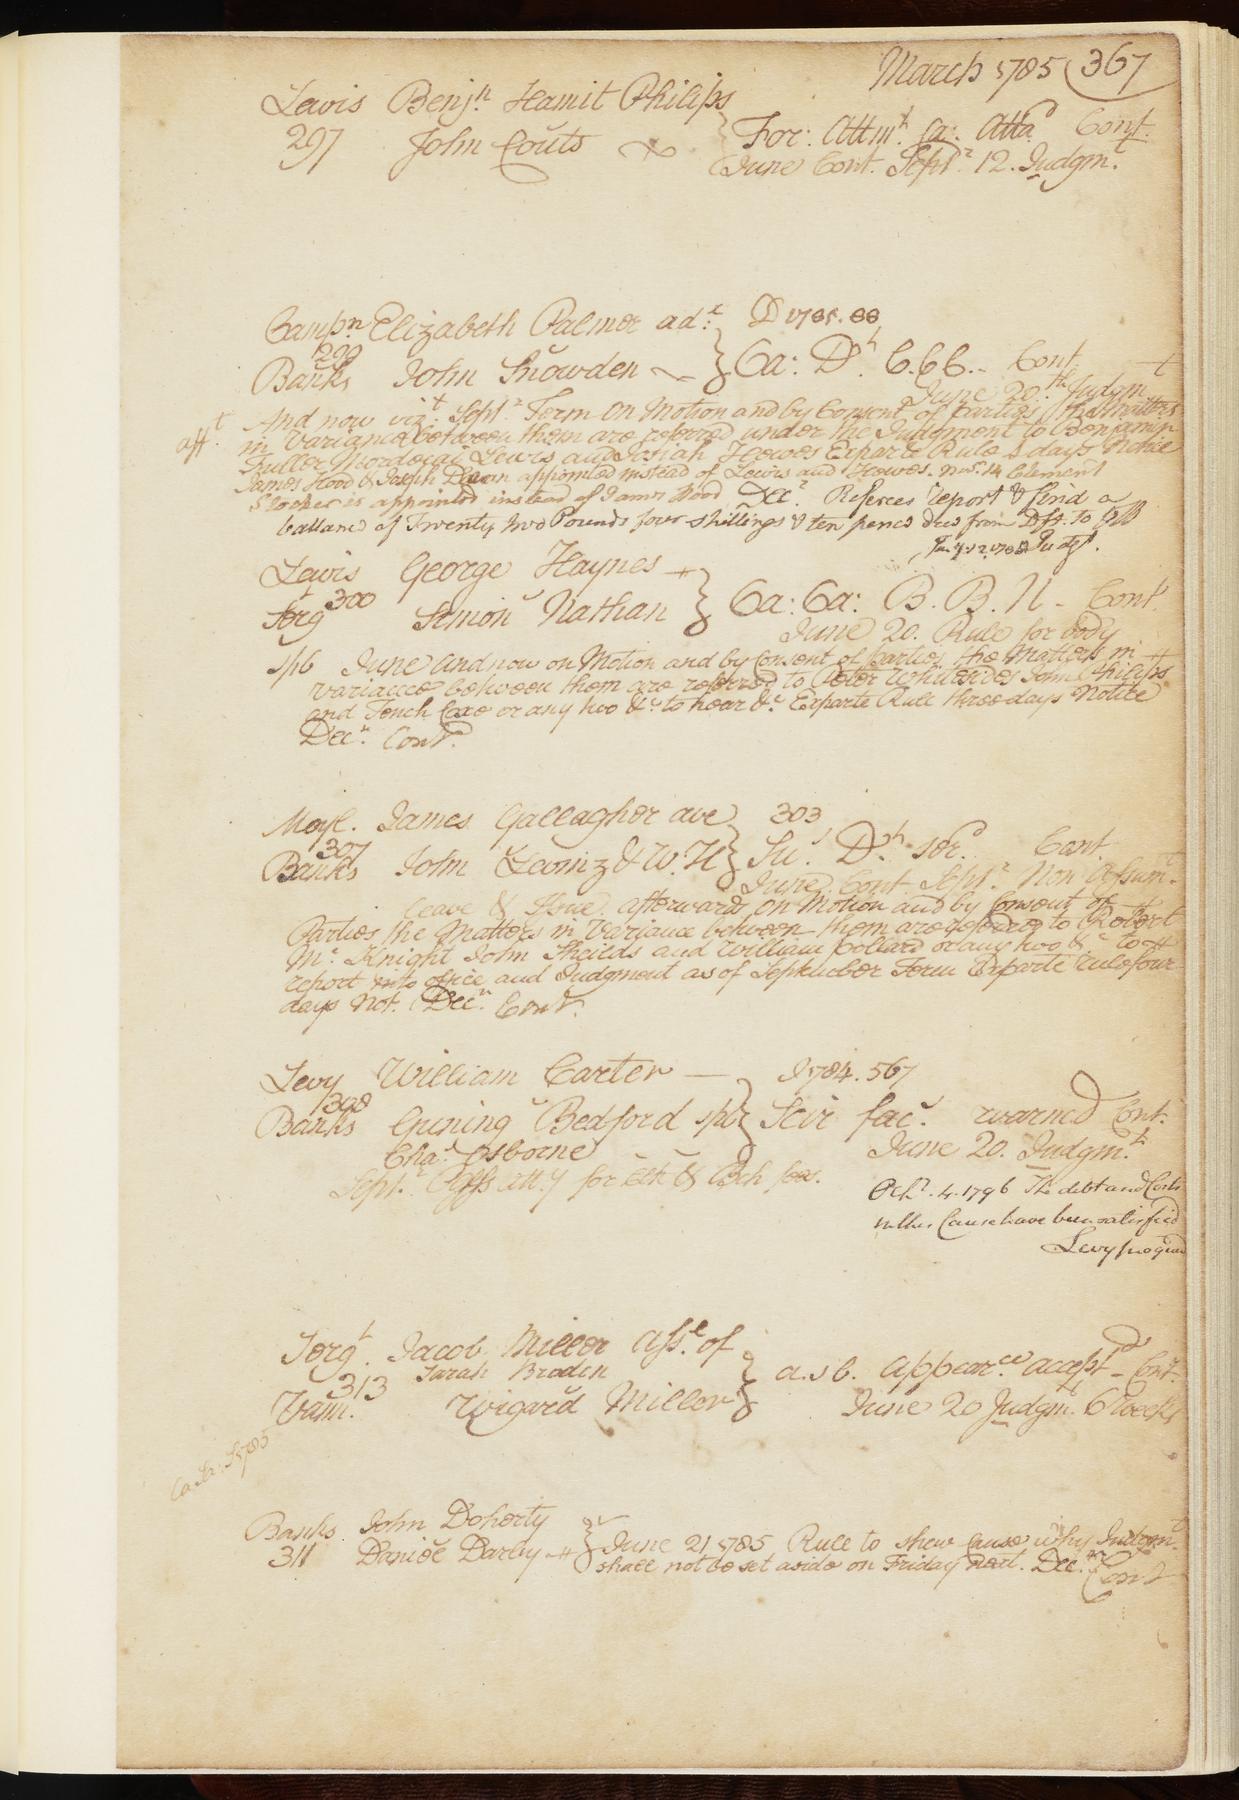 March 1785 367
Lewis Benjn. Hamit Philips
297 John Couts } For: Attmt. fa: Attad Cont.
June Cont. Septr. 12. Judgmt.
Campn Elizabeth Palmer adx. D 1785. 88
299
Banks John Snowden } Ca: Dt. C.C.C. Cont
June 20th. Judgmt
And now vizt. Septr. Term On Motion and by Consent of Parties the Matters
afft. in Variance between them are referred under the Judgment to Benjamin
Fuller Mordecai Lewis and Josiah Hewes Exparte Rule days Notice
James Hood & Joseph Dean appointed instead of Lewis and Hewes. Nov. 14 Clement
Stocker is appointed instead of James Hood Decr. Referees report & find a
ballance of Twenty two Pounds four shillings & ten pence due from Dft. to Plf
Judgt.
Lewis George Haynes
300
Serg Simon Nathan } Ca: Ca: B. B. N - Cont.
June 20. Rule for body
spb June and now on Motion and by Consent of Parties the Matters in
variance between them are referred to Peter Whitesides John Philips
and Tench Coxe or any two &c. to hear &c. Exparte Rule three days Notice
Decr. Cont.
Moyl. James Gallagher ave 303
307
Banks John & W. H } Su. Dt. Cont.
June Cont. Septr. Non Assumt.
leave & Issue afterwards on Motion and by Consent of
Parties the Matters in Variance between them are referred to Robert
Mc. Knight John Sheilds and William Pollard or any two &c to
report into office and Judgment as of September Term Exparte rule four
days Not. Decr. Cont.
Levy William Carter — J 1784. 567
308
Banks Guning Bedford spbr } Scir fac. warned Cont.
Chas. Osborne June 20. Judgmt.
Septr. Plffs atty for &
Octr. 4. 1796 The debt and Costs
in this Cause have been satisfied
Levy pro quer
Sergt. Jacob Miller Asse. of
Sarah Bradin } a.s b. Appearce. accept'd - Cont.
313
Vann. Wigard Miller June 20 Judgmt. 6 Weeks
Ca Sa. S 1785
Banks John Doherty
311 Daniel Darby } June 21 1785 Rule to shew Cause why Judgmt.
shall not be set aside on Friday next. Decr. Cont